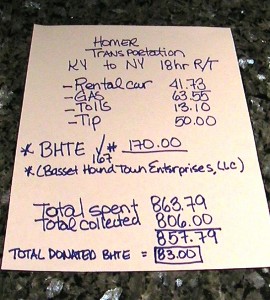 Homer
Transportation
KY to NY 18hr R/T
- Rental car 41.73
- GAS 63.55
- Tolls 13.10
- Tip 50.00
* BHTE ✓# 170.00
1167
*(Basset Hound Town Enterprises, LLC)
Total spent 863.79
Total collected 806.00
857.79
TOTAL DONATED BHTE = 83.00